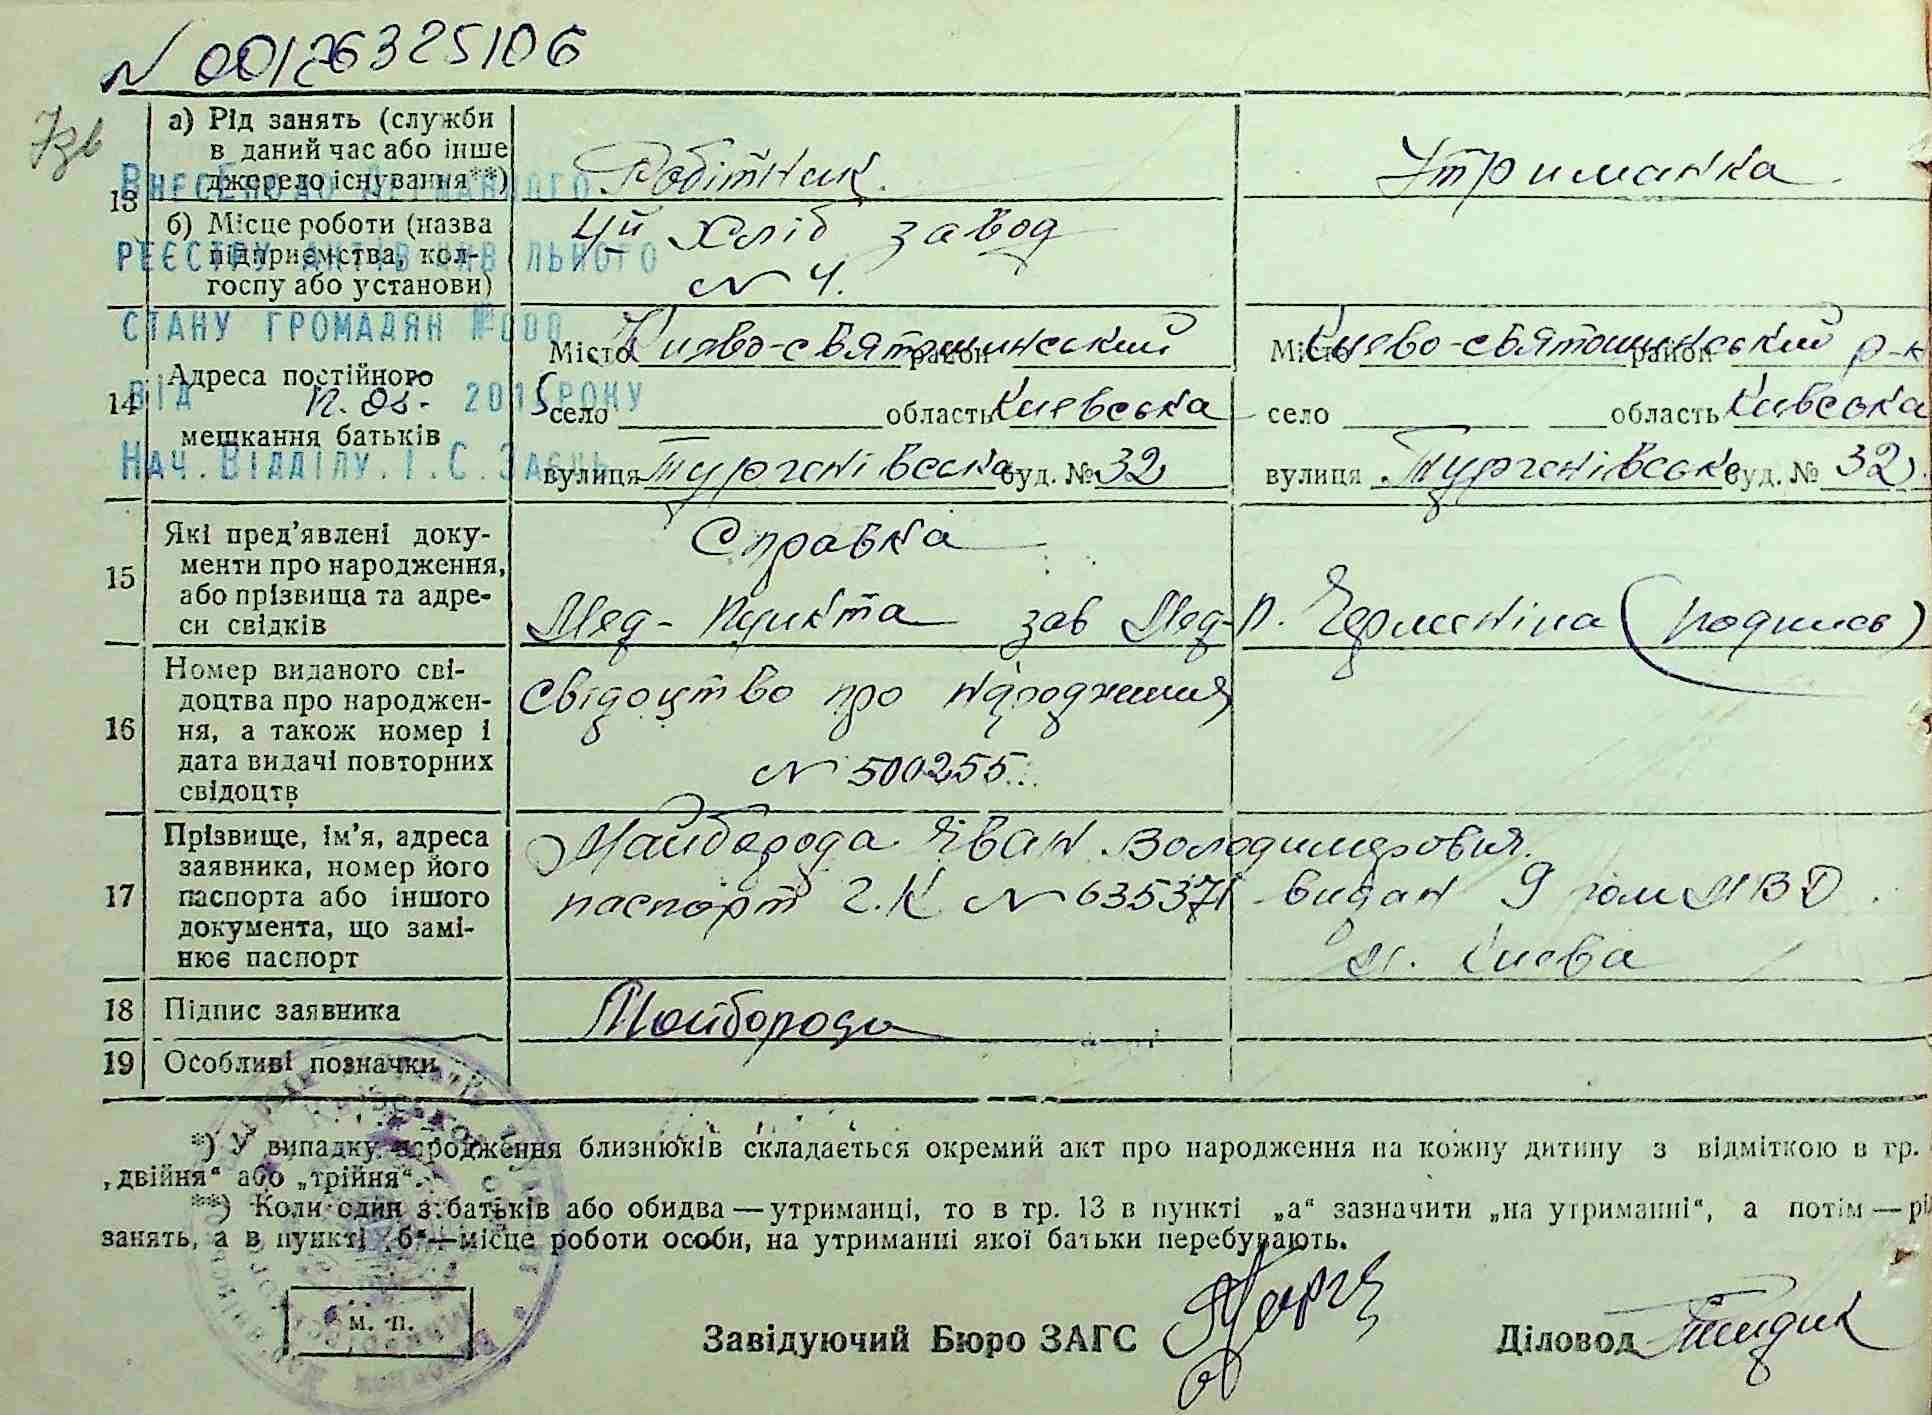 N 00126325106
а) Рід занять (служби
в даний час або інше
джерело існування**)
Робітник.
Утриманка.
13
б) Місце роботи (назва
підприємства, кол-
госпу або установи)
Хліб завод
N 4.
Внесено до Державного
реєстру актів цивільного
стану громадян №000
від 2015 року
Нач. Відділу. І.С. Заєць
14
Адреса постійного
мешкання батьків
Місто Києво-святошинський район
село область Киевська
вулиця Тургенівська буд. № 32
Місто Києво-святошинський район р-н
село область Киевська
вулиця Тургенівська буд. № 32
15
Які пред’явлені доку-
менти про народження,
або прізвища та адре-
си свідків
Справка
Мед-Пункта зав Мед-п. (подпись)
16
Номер виданого сві-
доцтва про народжен-
ня, а також номер і
дата видачі повторних
свідоцтв
Свідоцтво про народження
N 500255.
17
Прізвище, ім’я, адреса
заявника, номер його
паспорта або іншого
документа, що замі-
нює паспорт
Майборода Іван Володимирович.
паспорт 2.К N 635371 видан 9 МВД
м. Києва
18
Підпис заявника
Майборода
19
Особливі позначки
*) У випадку народження близнюків складається окремий акт про народження на кожну дитину з відміткою в гр.
„двійня“ або „трійня“.
**) Коли один з батьків або обидва — утриманці, то в гр. 13 в пункті „а“ зазначити „на утриманні“, а потім — рі
занять, а в пункті „б“ — місце роботи особи, на утриманні якої батьки перебувають.
м. п.
Завідуючий Бюро ЗАГС
Діловод